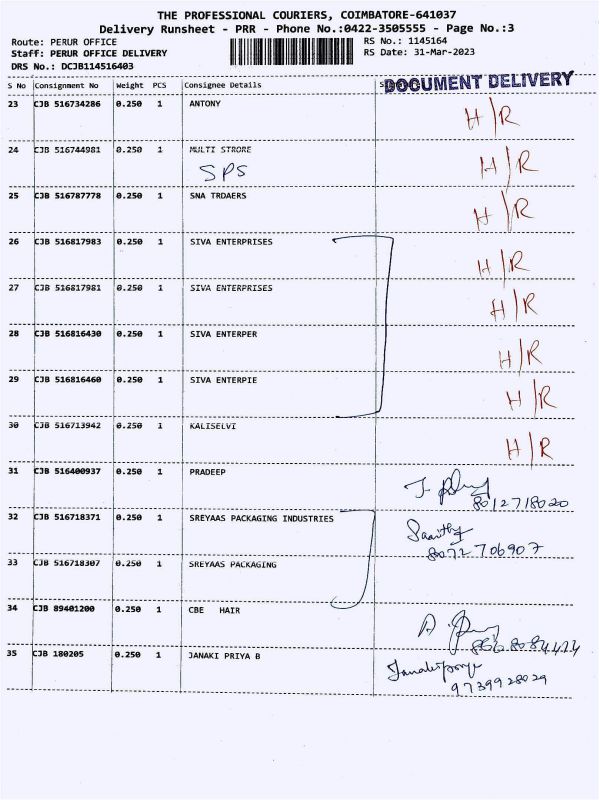 THE PROFESSIONAL COURIERS, COIMBATORE-641037
Delivery Runsheet - PRR - Phone No.:0422-3505555 - Page No.:3
Route: PERUR OFFICE RS No.: 1145164
Staff: PERUR OFFICE DELIVERY RS Date: 31-Mar-2023
DRS No.: DCJB114516403
S No Consignment No Weight PCS Consignee Details DOCUMENT DELIVERY
23 CJB 516734286 0.250 1 ANTONY H/R
24 CJB 516744981 0.250 1 MULTI STRORE H/R
SPS
25 CJB 516787778 0.250 1 SNA TRDAERS H/R
26 CJB 516817983 0.250 1 SIVA ENTERPRISES H/R
27 CJB 516817981 0.250 1 SIVA ENTERPRISES H/R
28 CJB 516816430 0.250 1 SIVA ENTERPER H/R
29 CJB 516816460 0.250 1 SIVA ENTERPIE H/R
30 CJB 516713942 0.250 1 KALISELVI H/R
31 CJB 516400937 0.250 1 PRADEEP
8012718020
32 CJB 516718371 0.250 1 SREYAAS PACKAGING INDUSTRIES
8072706907
33 CJB 516718307 0.250 1 SREYAAS PACKAGING
34 CJB 89401200 0.250 1 CBE HAIR
35 CJB 180205 0.250 1 JANAKI PRIYA B
9739928029